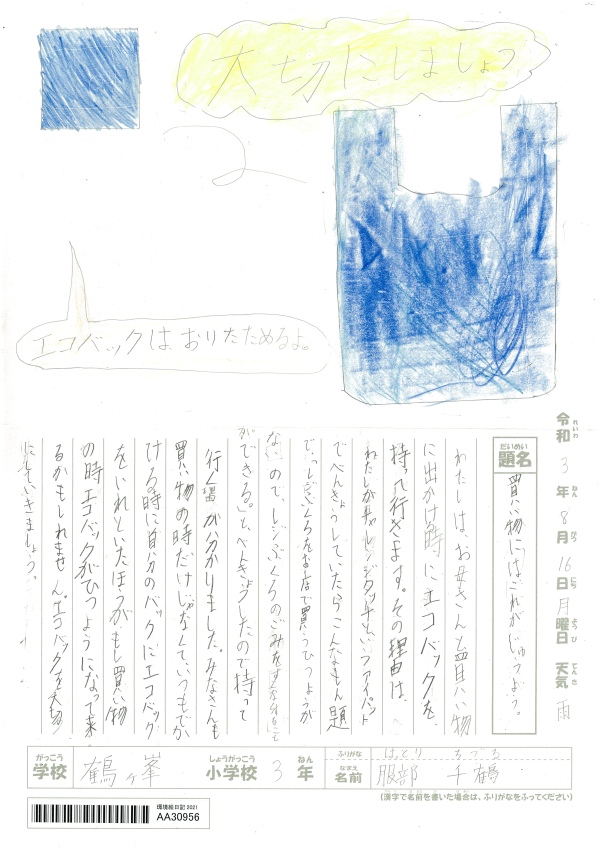 大切にしましょう
エコバックはおりたためるよ。
令和 3 年 8 月 16 日 月 曜日 天気 雨
れいわ ねん がつ にち ようび てんき
だいめい
題名 買い物にはこれがじゅうよう。
わたしは、お母さんと買い物
に出かける時にエコバックを、
持って行きます。その理由は、
わたしがチャレンジタッチというアイパット
でべんきょうしていたらこんなもん題
で、「レジぶくろをお店で買うひつようが
ないので、レジぶくろのごみを
ができる。」と、べんきょうしたので持って
行く が分かりました。みなさんも
買い物の時だけじゃなくて、いつもでか
ける時に自分のバックにエコバック
をいれといたほうがもし買い物
の時エコバックがひつようになって来
るかもしれません。エコバックを大切
にしていきましょう。
がっこう しょうがっこう ねん ふりがな はっとり ちづる
学校 鶴ヶ峯 小学校 3 年 なまえ 名前 服部 千鶴
(漢字で名前を書いた場合は、ふりがなをふってください)
環境絵日記 2021
AA30956